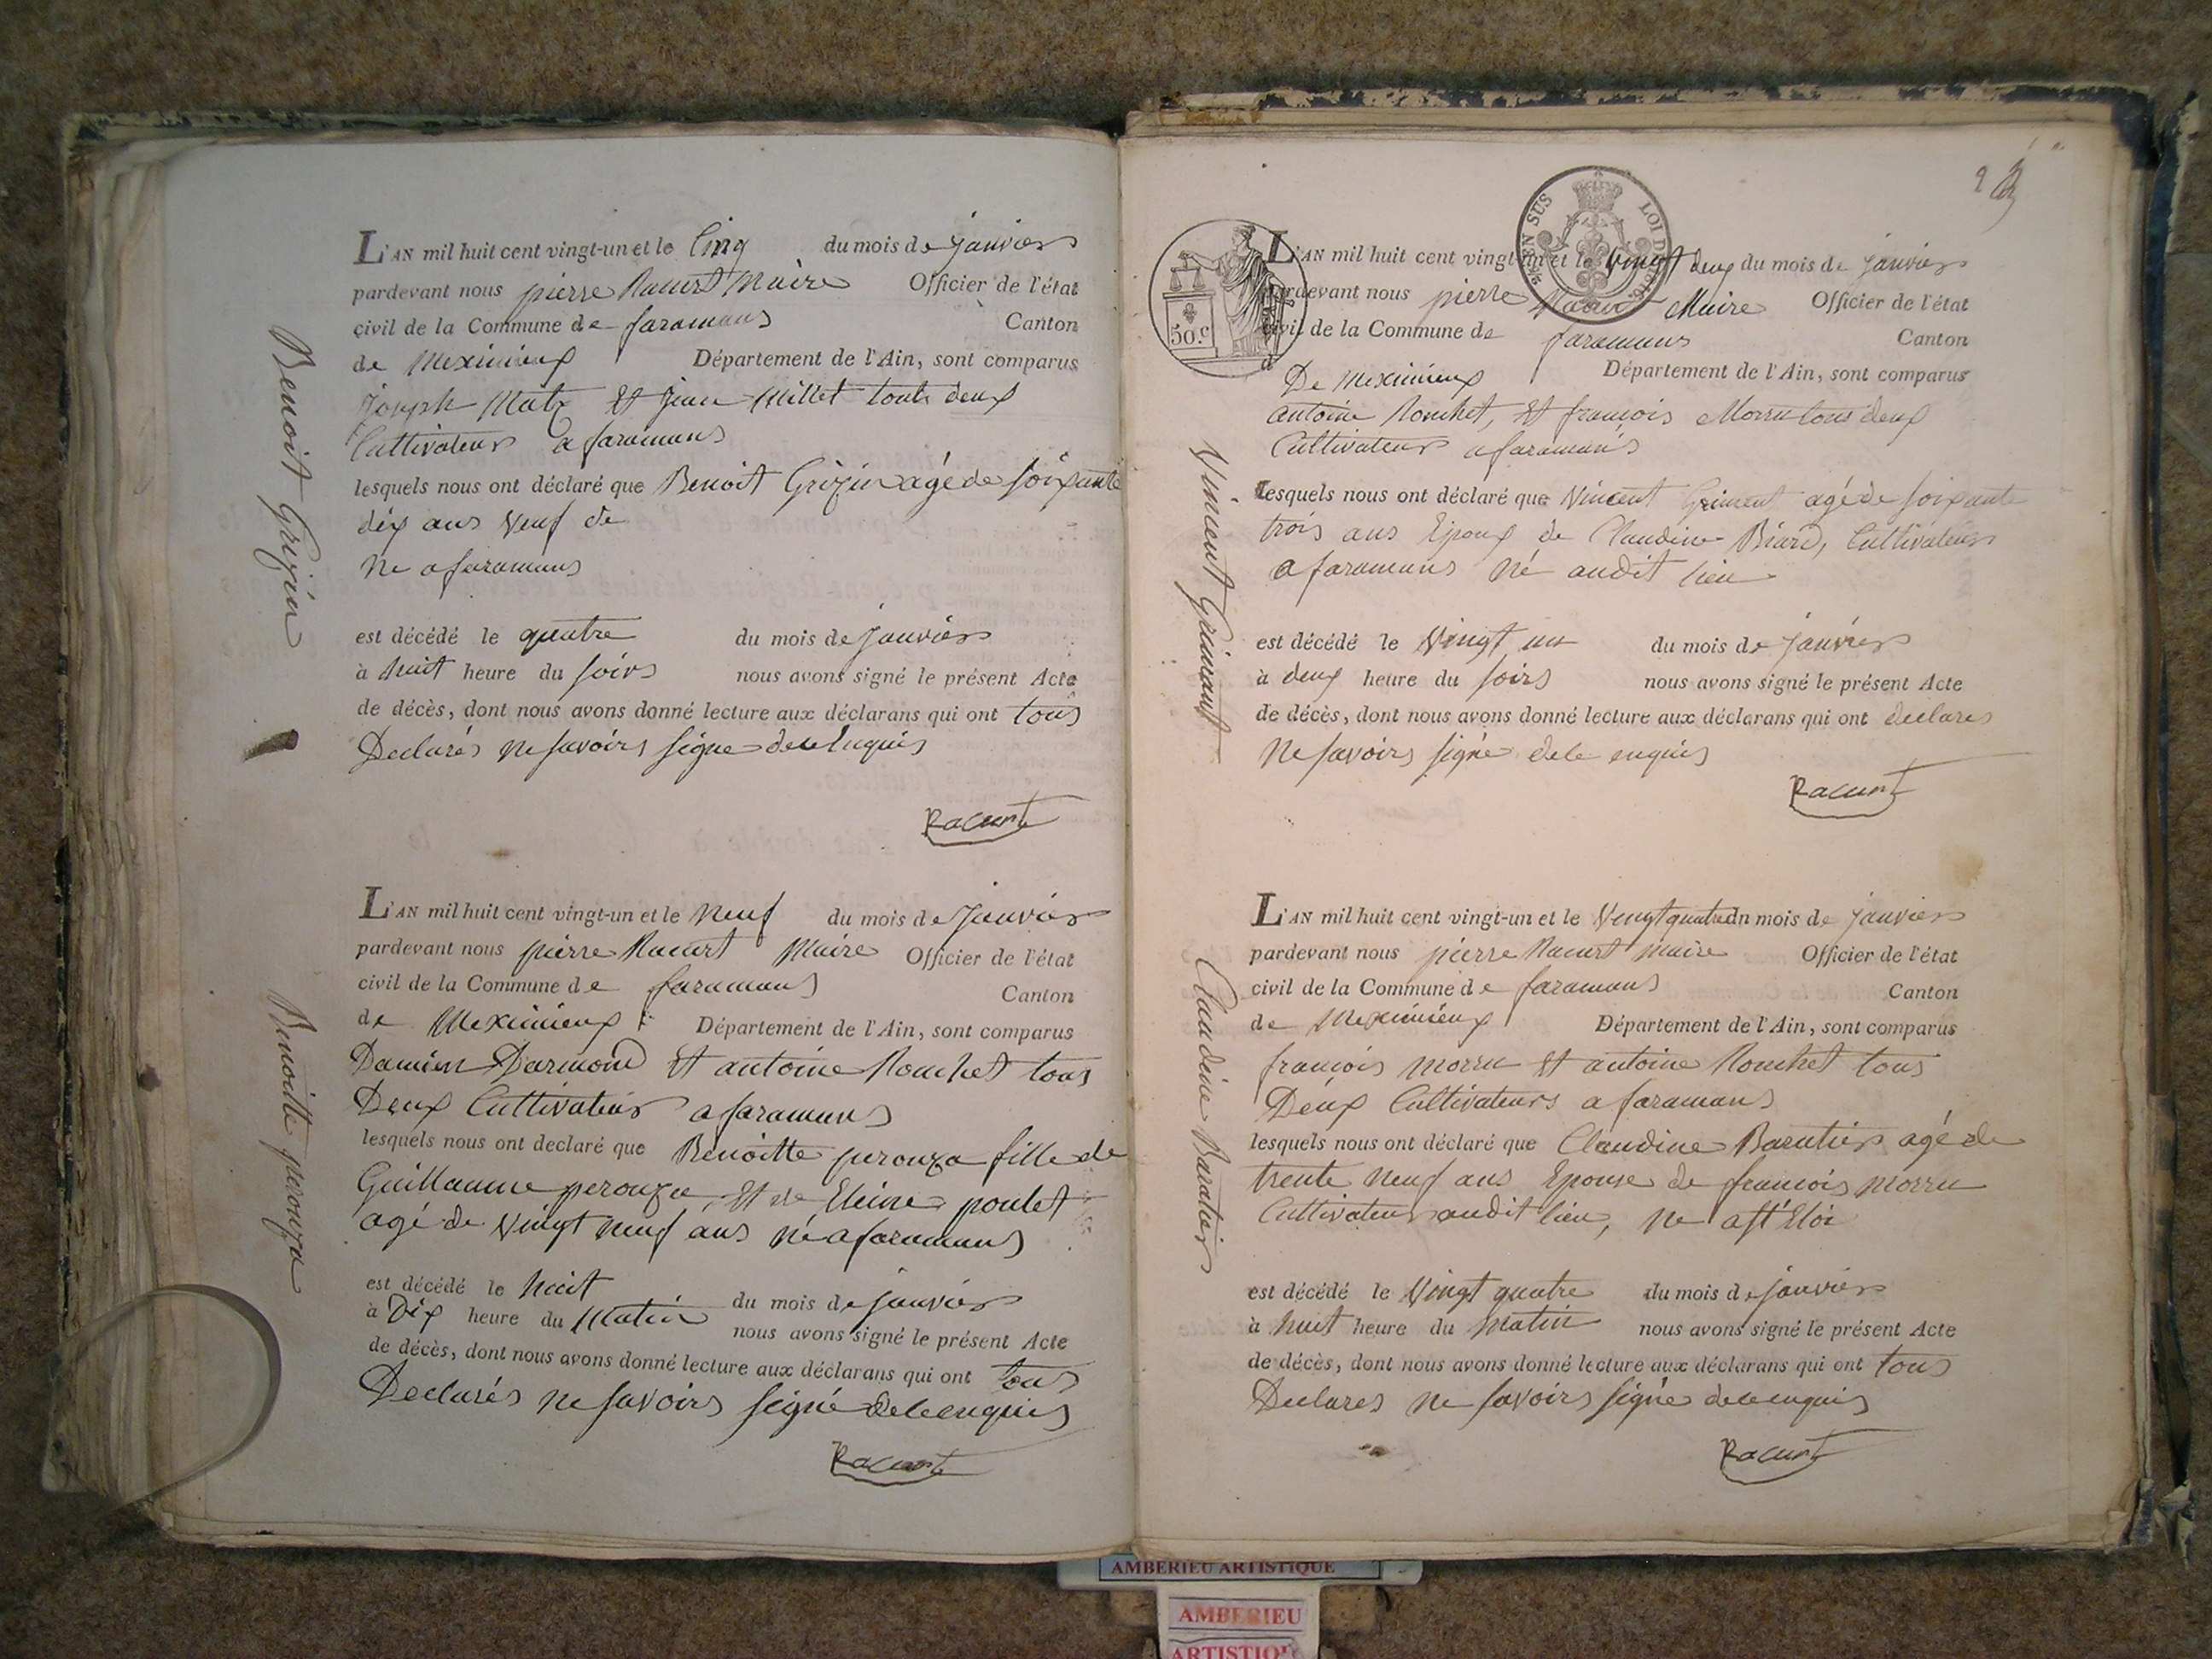 L'AN mil huit cent vingt-un et le Cinq du mois de janvier
pardevant nous pierre Racurt Maire Officier de l'état
civil de la Commune de faramans Canton
de Meximieux Département de l'Ain, sont comparus
joseph Matz Et jean Millet touts deux
Cultivateur a faramans
lesquels nous ont déclaré que Benoit Grizin agé de soixante
dix ans Veuf de
Ne a faramans
est décédé le quatre du mois de janvier
à huit heure du soirs nous avons signé le présent Acte
de décès, dont nous avons donné lecture aux déclarans qui ont tous
Declarés ne savoirs signe de ce Enquis
Racurt
Benoit Grizin
L'AN mil huit cent vingt-un et le Neuf du mois de Janvier
pardevant nous pierre Racurt Maire Officier de l'état
civil de la Commune de faramans Canton
de Meximieux Département de l'Ain, sont comparus
Damien Darmond Et antoine Rouchet tous
Deux Cultivateur a faramans
lesquels nous ont declaré que Benoitte perouza fille de
Guillaume perouza, Et de Eleine poulet
agé de Vingt neuf ans né a faramans
est décédé le huit du mois de janvier
à Dix heure du Matin nous avons signé le présent Acte
de décès, dont nous avons donné lecture aux déclarans qui ont tous
Declarés ne savoirs signé de ce enquis
Racurt
Benoitte perouza
2
BIEN SUS LOI DE 1816
50.c
L'AN mil huit cent vingt-un et le Vingt deux du mois de janvier
pardevant nous pierre Racurt Maire Officier de l'état
civil de la Commune de faramans Canton
De Meximieux Département de l'Ain, sont comparus
antoine Rouchet, Et françois Morru tous deux
Cultivateur a faramans
lesquels nous ont déclaré que Vincent agé de soixante
trois ans Epoux de Claudine Biard, Cultivateur
a faramans né audit lieu
est décédé le Vingt un du mois de janvier
à deux heure du soirs nous avons signé le présent Acte
de décès, dont nous avons donné lecture aux déclarans qui ont declares
Ne savoirs signé de ce enquis
Racurt
Vincent Grimaut
L'AN mil huit cent vingt-un et le Vingt quatre du mois de janvier
pardevant nous pierre Racurt maire Officier de l'état
civil de la Commune de faramans Canton
de Meximieux Département de l'Ain, sont comparus
françois morru Et antoine Rouchet tous
Deux Cultivateurs a faramans
lesquels nous ont déclaré que Claudine Baratier agé de
trente neuf ans Epouse de francois morru
Cultivateur audit lieu, Ne a st Eloi
est décédé le Vingt quatre du mois de janvier
à huit heure du Matin nous avons signé le présent Acte
de décès, dont nous avons donné lecture aux déclarans qui ont tous
Declares ne savoirs signé de ce enquis
Racurt
Claudine Baratier
AMBERIEU ARTISTIQUE
AMBERIEU
ARTISTIQUE